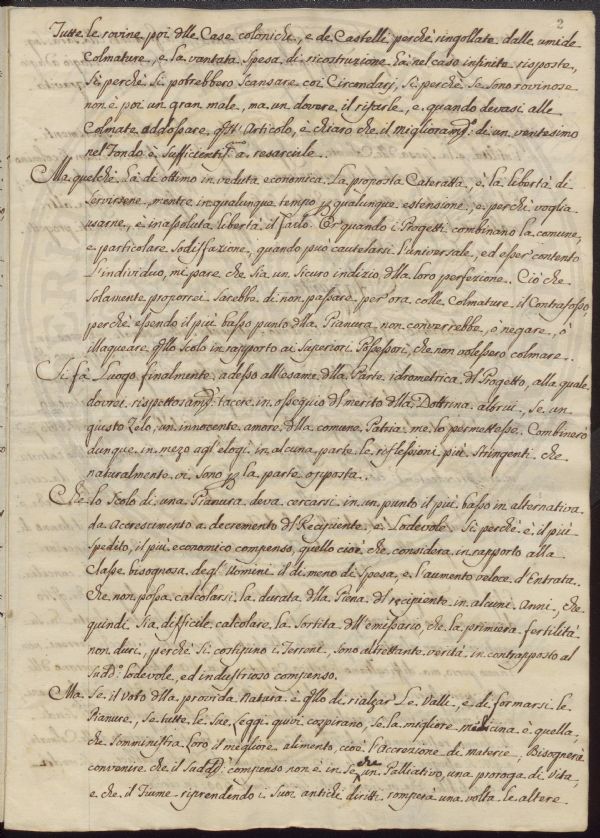 2
Tutte le rovine poi dlle Case coloniche, e de Castelli, perchè ringollate dalle umide
Colmature, e la vantata Spesa di ricostruzione hà nel caso infinite risposte,
Sì perchè Si potrebbero Scansare coi Circondarj, Sì perchè Se Sono rovinose
non è poi un gran male, ma un dovere il rifarle, e quando devasi alle
Colmate addossare Articolo, è chiaro che il miglioram: di un ventesimo
nel Fondo è Sufficientis: a resarcirle.
Ma quelchè hà di ottimo in veduta economica La proposta Cateratta, è la libertà di
Servirsene mentre in qualunque tempo, p qualunque estensione, e perchè voglia
usarne, è in assoluta libertà il farlo. Or quando i Progetti combinano la comune,
e particolare Sodisfazione, quando può cautelarsi l'universale, ed esser contento
L'individuo, mi pare che Sia un Sicuro indizio dlla loro perfezione. Ciò che
Solamente proporrei Sarebbe di non passare per ora colle Colmature il Contrafosso,
perchè essendo il più basso punto dlla Pianura non converrebbe, e negare, o
illaqueare qllo Scolo in rapporto ai Superiori Possessori, che non volessero colmare.
Si fà Luogo finalmente adesso all'esame dlla Parte idrometrica dl Progetto, alla quale
dovrei rispettosam: tacere in ossequio dl merito dlla Dottrina altrui, Se un
giusto Zelo, un innocente amore dlla comune Patria me lo permettesse. Combinerò
dunque in mezo agl'elogi in alcuna parte le riflessioni più Stringenti che
naturalmente vi Sono p la parte opposta.
Che lo Scolo di una Pianura deva cercarsi in un punto il più basso in alternativa
da Acrescimento a decremento dl Recipiente è Lodevole Sì perchè è il più
Spedito, il più economico compenso, quello cioè che considera in rapporto alla
Classe bisognosa degl'Uomini il di meno di Spesa, e l'aumento veloce d'Entrata.
Che non possa calcolarsi la durata dlla Piena dl recipiente in alcuni Anni, che
quindi Sia difficile calcolare la Sortita dll'emissario, che la primiera fertilità
non duri, perchè Si costipino i Terreni, Sono altrettante verità in contrapposto al
Sudd: lodevole, ed industrioso compenso.
Ma Se il Voto dlla provvida Natura è qllo di rialzar Le Valli, e di formarsi le
Pianure, Se tutte le Sue Leggi quivi cospirano, Se la migliore medicina è quella,
che Somministra Loro il migliore alimento, cioè l'accrezione di materie, Bisognerà
convenire che il Sudd: compenso non è in Se che un Palliativo, una proroga di Vita,
e che il Fiume riprendendo i Suoi antichi diritti romperà una volta le altere